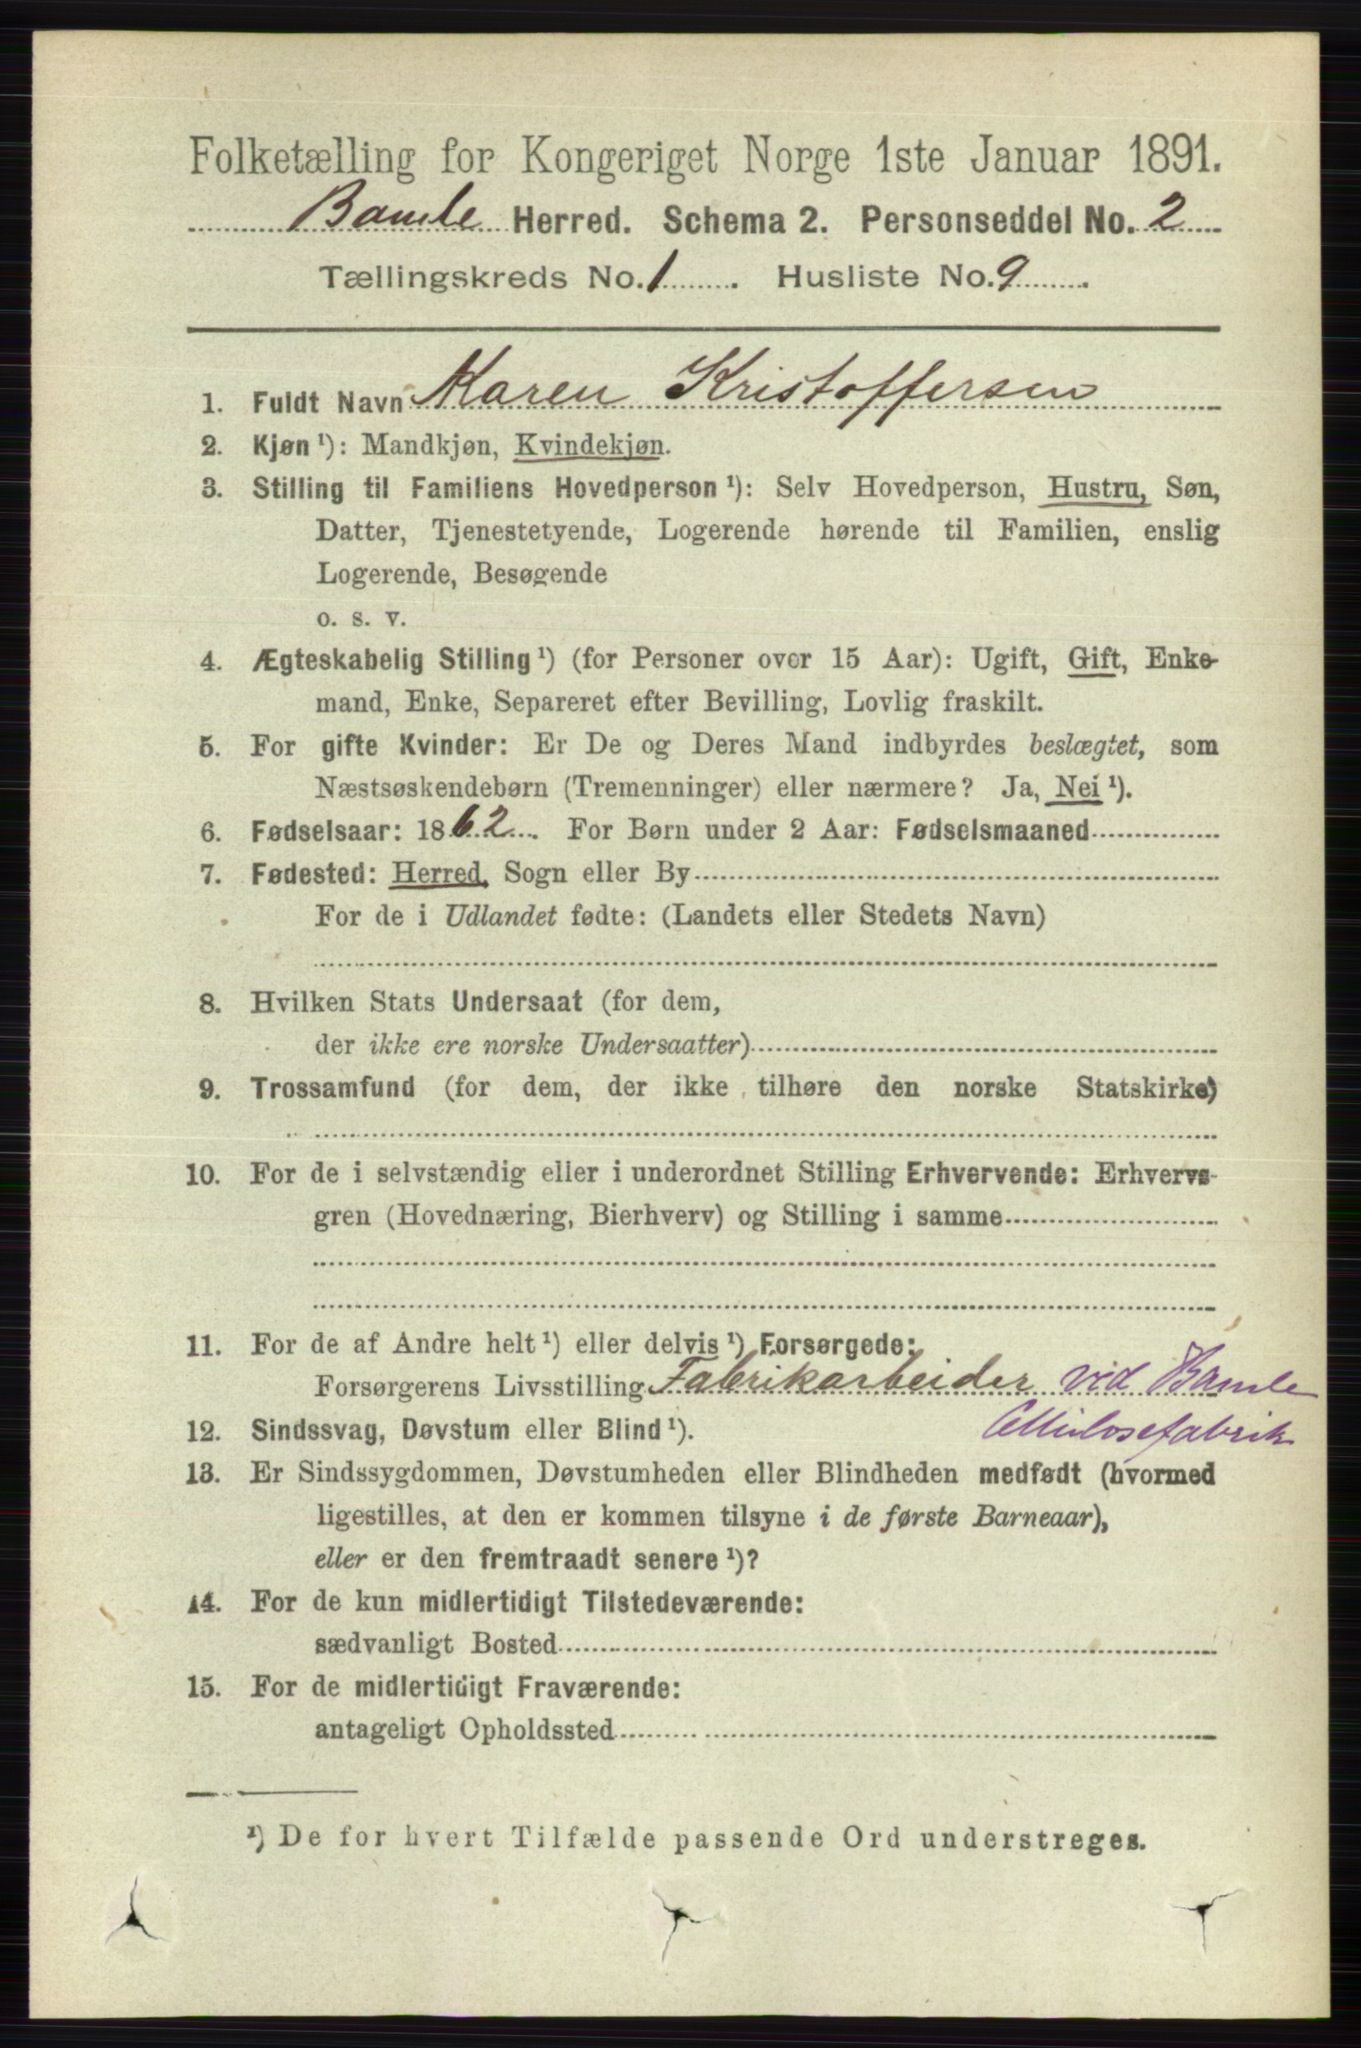 Folketælling for Kongeriget Norge 1ste Januar 1891.
Bamle Herred. Schema 2. Personseddel No. 2
Tællingskreds No. 1. Husliste No. 9.
1. Fuldt Navn Maren Kristoffersen
2. Kjøn ¹): Mandkjøn, Kvindekjøn.
3. Stilling til Familiens Hovedperson ¹): Selv Hovedperson, Hustru, Søn,
Datter, Tjenestetyende, Logerende hørende til Familien, enslig
Logerende, Besøgende
o. s. v.
4. Ægteskabelig Stilling ¹) (for Personer over 15 Aar): Ugift, Gift, Enke-
mand, Enke, Separeret efter Bevilling, Lovlig fraskilt.
5. For gifte Kvinder: Er De og Deres Mand indbyrdes beslægtet, som
Næstsøskendebørn (Tremenninger) eller nærmere? Ja, Nei ¹).
6. Fødselsaar: 1862. For Børn under 2 Aar: Fødselsmaaned
7. Fødested: Herred, Sogn eller By
For de i Udlandet fødte: (Landets eller Stedets Navn)
8. Hvilken Stats Undersaat (for dem,
der ikke ere norske Undersaatter)
9. Trossamfund (for dem, der ikke tilhøre den norske Statskirke)
10. For de i selvstændig eller i underordnet Stilling Erhvervende: Erhvervs-
gren (Hovednæring, Bierhverv) og Stilling i samme
11. For de af Andre helt ¹) eller delvis ¹) Forsørgede:
Forsørgerens Livsstilling Fabrikarbeider vid Bamle
Cellulosefabrik
12. Sindssvag, Døvstum eller Blind ¹).
13. Er Sindssygdommen, Døvstumheden eller Blindheden medfødt (hvormed
ligestilles, at den er kommen tilsyne i de første Barneaar),
eller er den fremtraadt senere ¹)?
14. For de kun midlertidigt Tilstedeværende:
sædvanligt Bosted
15. For de midlertidigt Fraværende:
antageligt Opholdssted
¹) De for hvert Tilfælde passende Ord understreges.